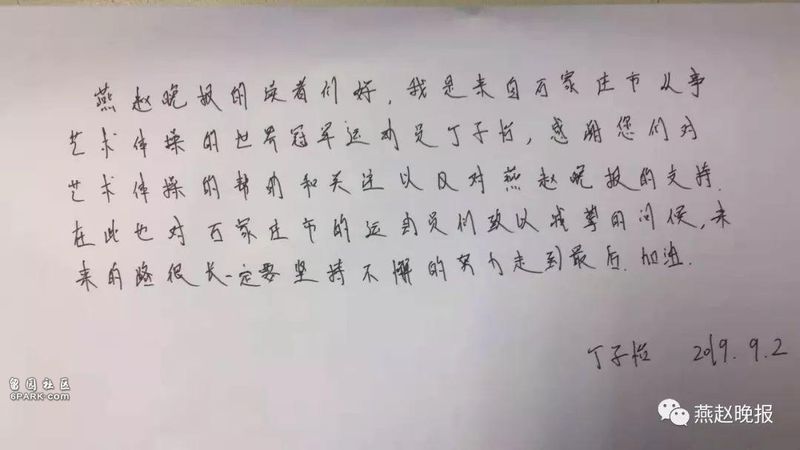 燕赵晚报的读者们好,我是来自石家庄市从事
艺术体操的世界冠军运动员丁子怡,感谢您们对
艺术体操的帮助和关注以及对燕赵晚报的支持.
在此也对石家庄市的运动员们致以诚挚的问候,未
来的路很长一定要坚持不懈的努力走到最后.加油.
丁子怡 2019.9.2
留园社区
6PARK.com
燕赵晚报